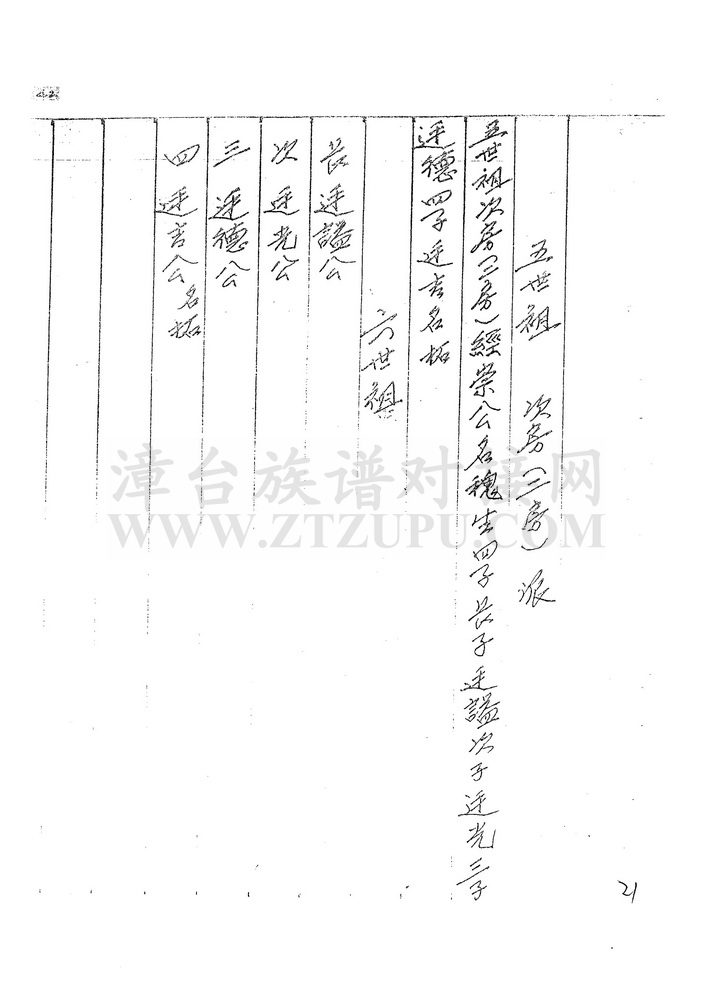 五世祖 次房(三房)派
五世祖次房(三房)經崇公名瑰生四子長子廷謚次子廷光三子
廷德四子廷吉名柘
六世祖
長廷謚公
次廷光公
三廷德公
四廷吉公名柘
漳台族谱对接网
WWW.ZTZUPU.COM
21